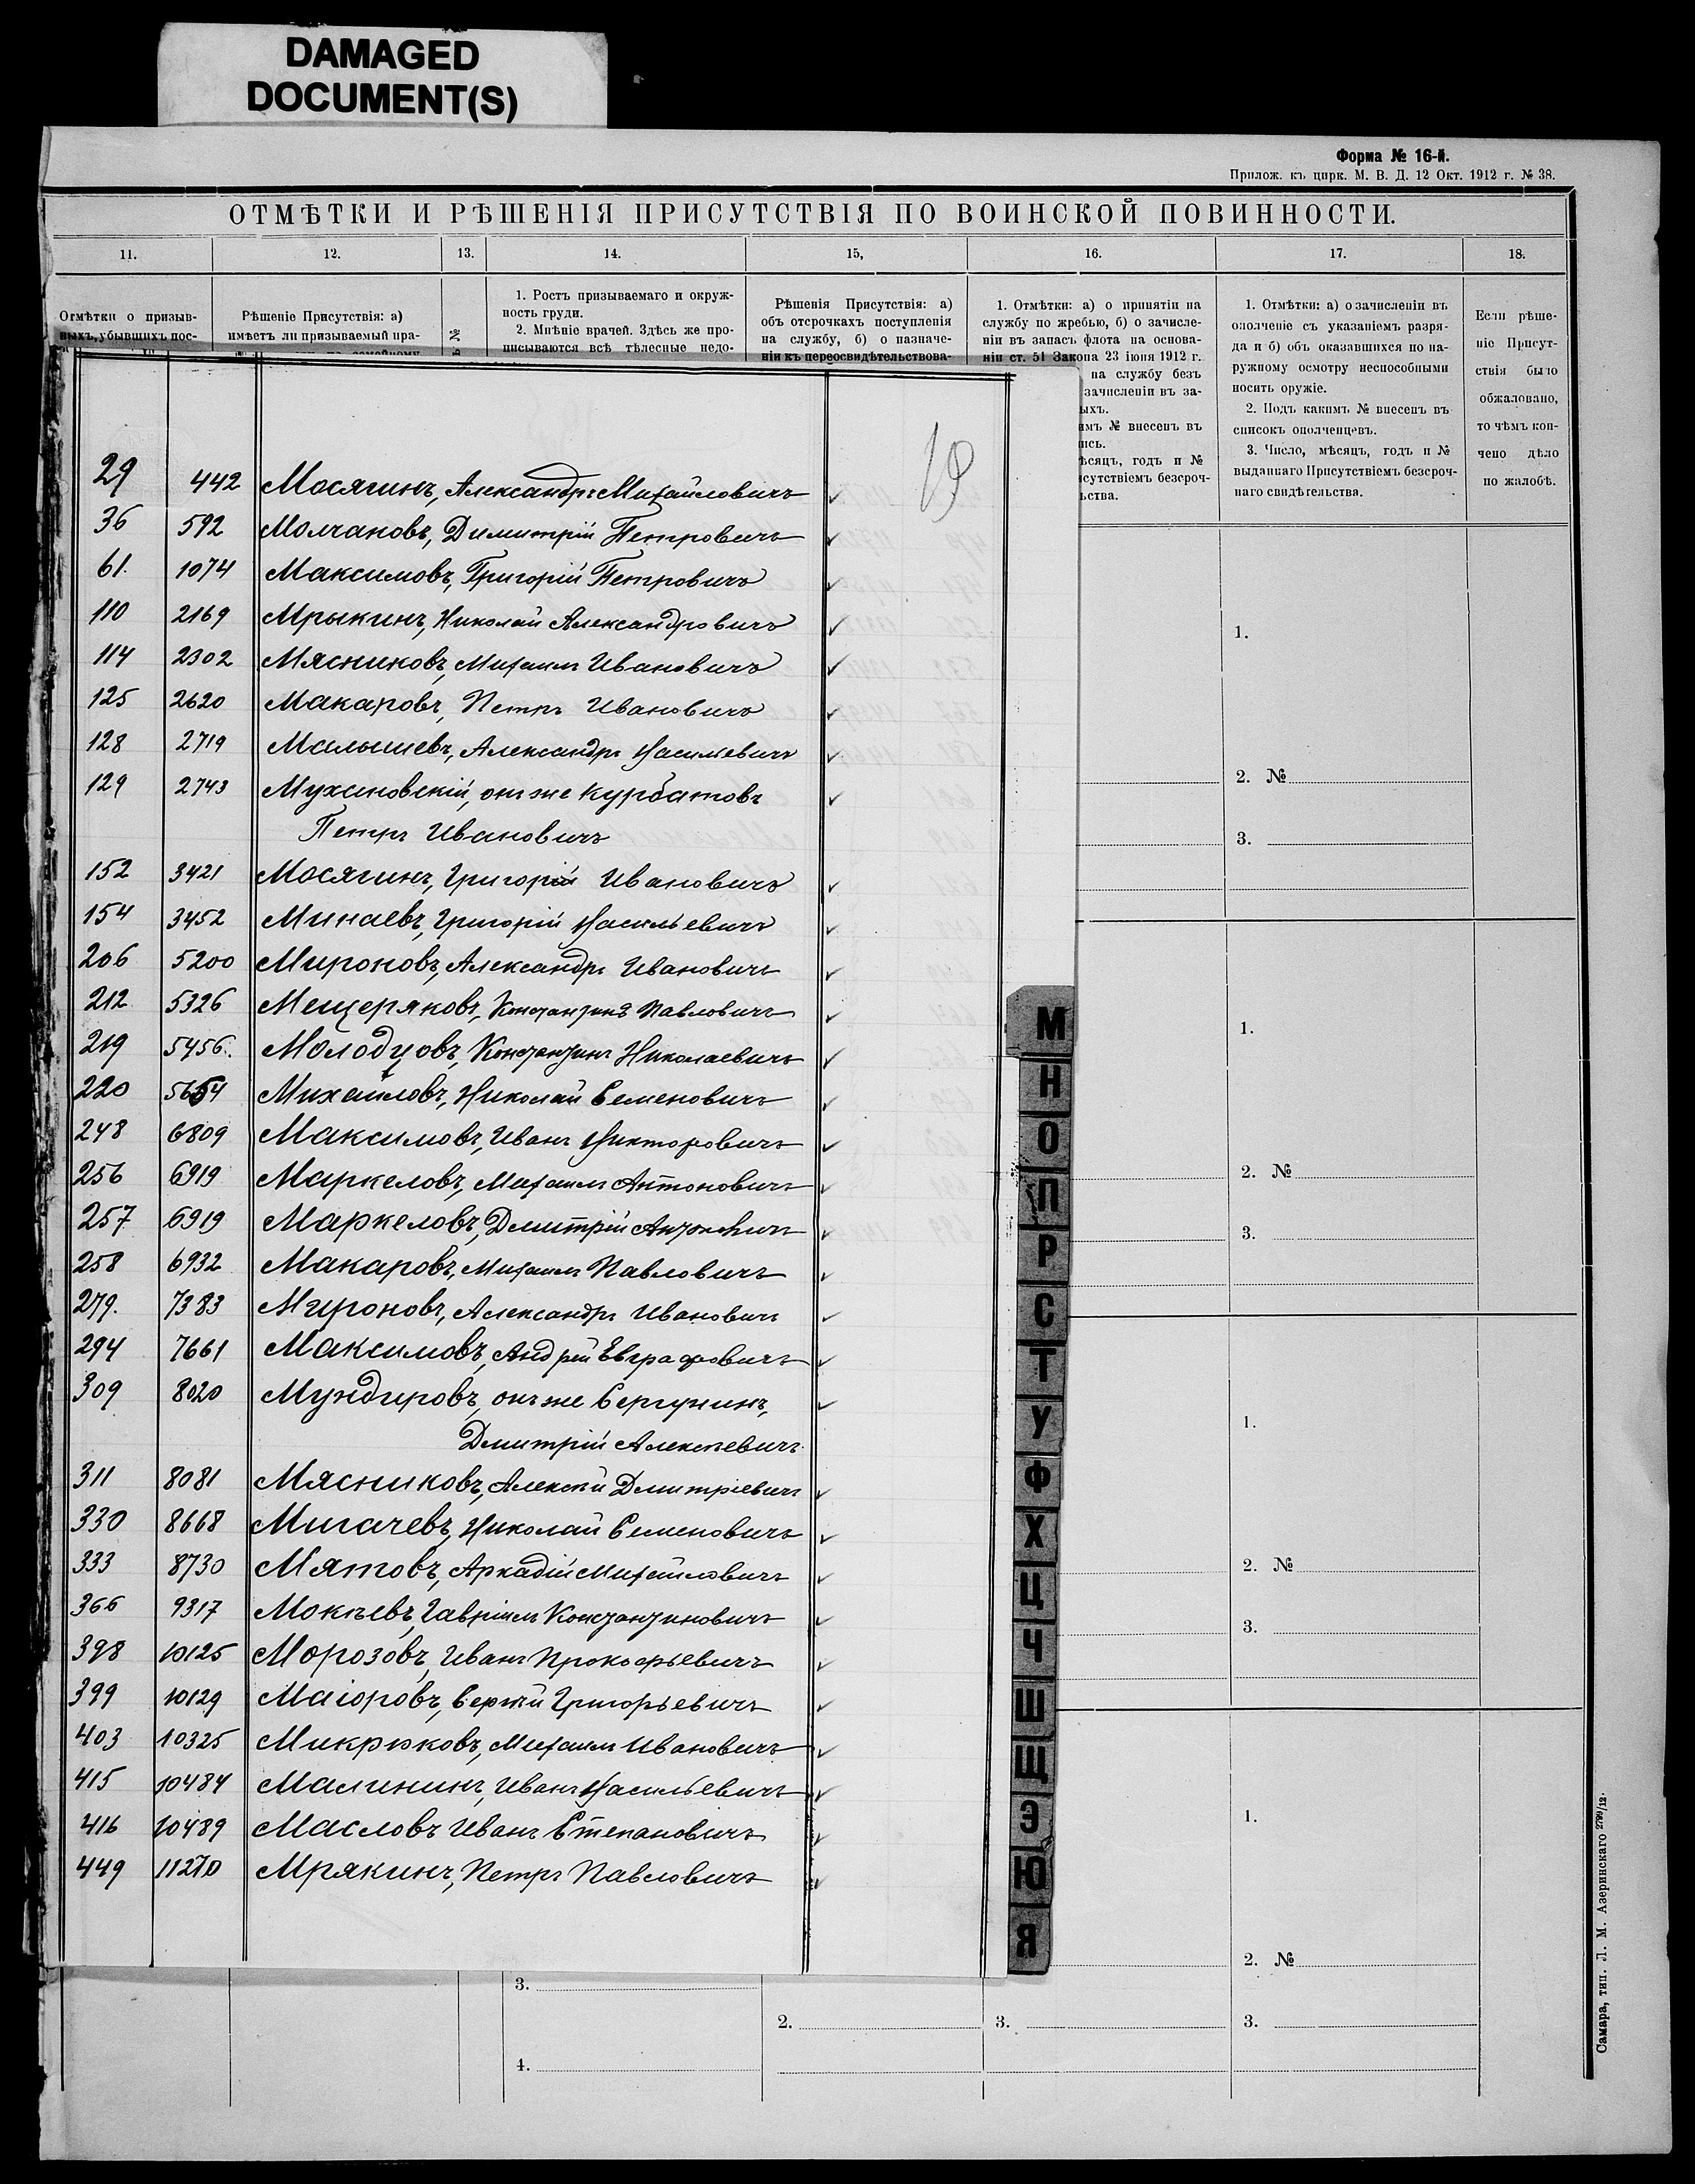 DAMAGED
DOCUMENT(S)
Форма № 16-й.
Прилож. къ цирк. М. В. Д. 12 Окт. 1912 г. № 38.
ОТМѢТКИ И РѢШЕНІЯ ПРИСУТСТВІЯ ПО ВОИНСКОЙ ПОВИННОСТИ.
11. 12. 13. 14. 15, 16. 17. 18.
Отмѣтки о призыв-
ныхъ, убывшихъ пос-
Рѣшеніе Присутствія: а)
имѣетъ ли призываемый пра-
№
1. Ростъ призываемаго и окруж-
ность груди.
2. Мнѣніе врачей. Здѣсь же про-
писываются всѣ тѣлесные недо-
Рѣшенія Присутствія: а)
объ отсрочкахъ поступленія
на службу, б) о назначе-
ніи къ переосвидѣтельствова-
1. Отмѣтки: а) о принятіи на
службу по жребью, б) о зачисле-
ніи въ запасъ флота на основа-
ніи ст. 51 Закона 23 іюня 1912 г.
на службу безъ
зачисленіи въ за-
ыхъ.
имъ № внесенъ въ
ись.
ѣсяцъ, годъ и №
исутствіемъ безсроч-
ьства.
1. Отмѣтки: а) о зачисленіи въ
ополченіе съ указаніемъ разря-
да и б) объ оказавшихся по на-
ружному осмотру неспособными
носить оружіе.
2. Подъ какимъ № внесенъ въ
списокъ ополченцевъ.
3. Число, мѣсяцъ, годъ и №
выданнаго Присутствіемъ безсроч-
наго свидѣтельства.
Если рѣше-
ніе Присут-
ствія было
обжаловано,
то чѣмъ кон-
чено дѣло
по жалобѣ.
29 442 Мосягинъ, Александръ Михайловичъ
36 592 Молчановъ, Димитрій Петровичъ
61. 1074 Максимовъ, Григорій Петровичъ
110 2169 Мрыкинъ, Николай Александровичъ
114 2302 Мясниковъ, Михаилъ Ивановичъ
125 2620 Макаровъ, Петръ Ивановичъ
128 2719 Малышевъ, Александръ Васильевичъ
129 2743 Мухиновскій, онъ же Курбатовъ
Петръ Ивановичъ
152 3421 Мосягинъ, Григорій Ивановичъ
154 3452 Минаевъ, Григорій Васильевичъ
206 5200 Мироновъ, Александръ Ивановичъ
212 5326 Мещеряковъ, Константинъ Павловичъ
219 5456. Молодцовъ, Константинъ Николаевичъ
220 5654 Михайловъ, Николай Семеновичъ
248 6809 Максимовъ, Иванъ Викторовичъ
256 6919 Маркеловъ, Михаилъ Антоновичъ
257 6919 Маркеловъ, Дмитрій Антоновичъ
258 6932 Макаровъ, Михаилъ Павловичъ
279. 7383 Мироновъ, Александръ Ивановичъ
294 7661 Максимовъ, Андрей Евграфовичъ
309 8020 Мундировъ, онъ же Сергунинъ,
Дмитрій Алексѣевичъ
311 8081 Мясниковъ, Алексѣй Дмитріевичъ
330 8668 Мигачевъ, Николай Семеновичъ
333 8730 Мятовъ, Аркадій Михайловичъ
366 9317 Мокѣевъ, Гавріилъ Константиновичъ
398 10125 Морозовъ, Иванъ Прокофьевичъ
399 10129 Маіоровъ, Сергѣй Григорьевичъ
403 10325 Микрюковъ, Михаилъ Ивановичъ
415 10484 Малининъ, Иванъ Васильевичъ
416 10489 Масловъ Иванъ Степановичъ
449 11270 Мрякинъ, Петръ Павловичъ
М
Н
О
П
Р
С
Т
У
Ф
Х
Ц
Ч
Ш
Щ
Э
Ю
Я
1.
2. №
3.
1.
2. №
3.
1.
2. №
3.
1.
2. №
3.
3.
2.
3.
4.
Самара, тип. Л. М. Азеринскаго 2799/12.